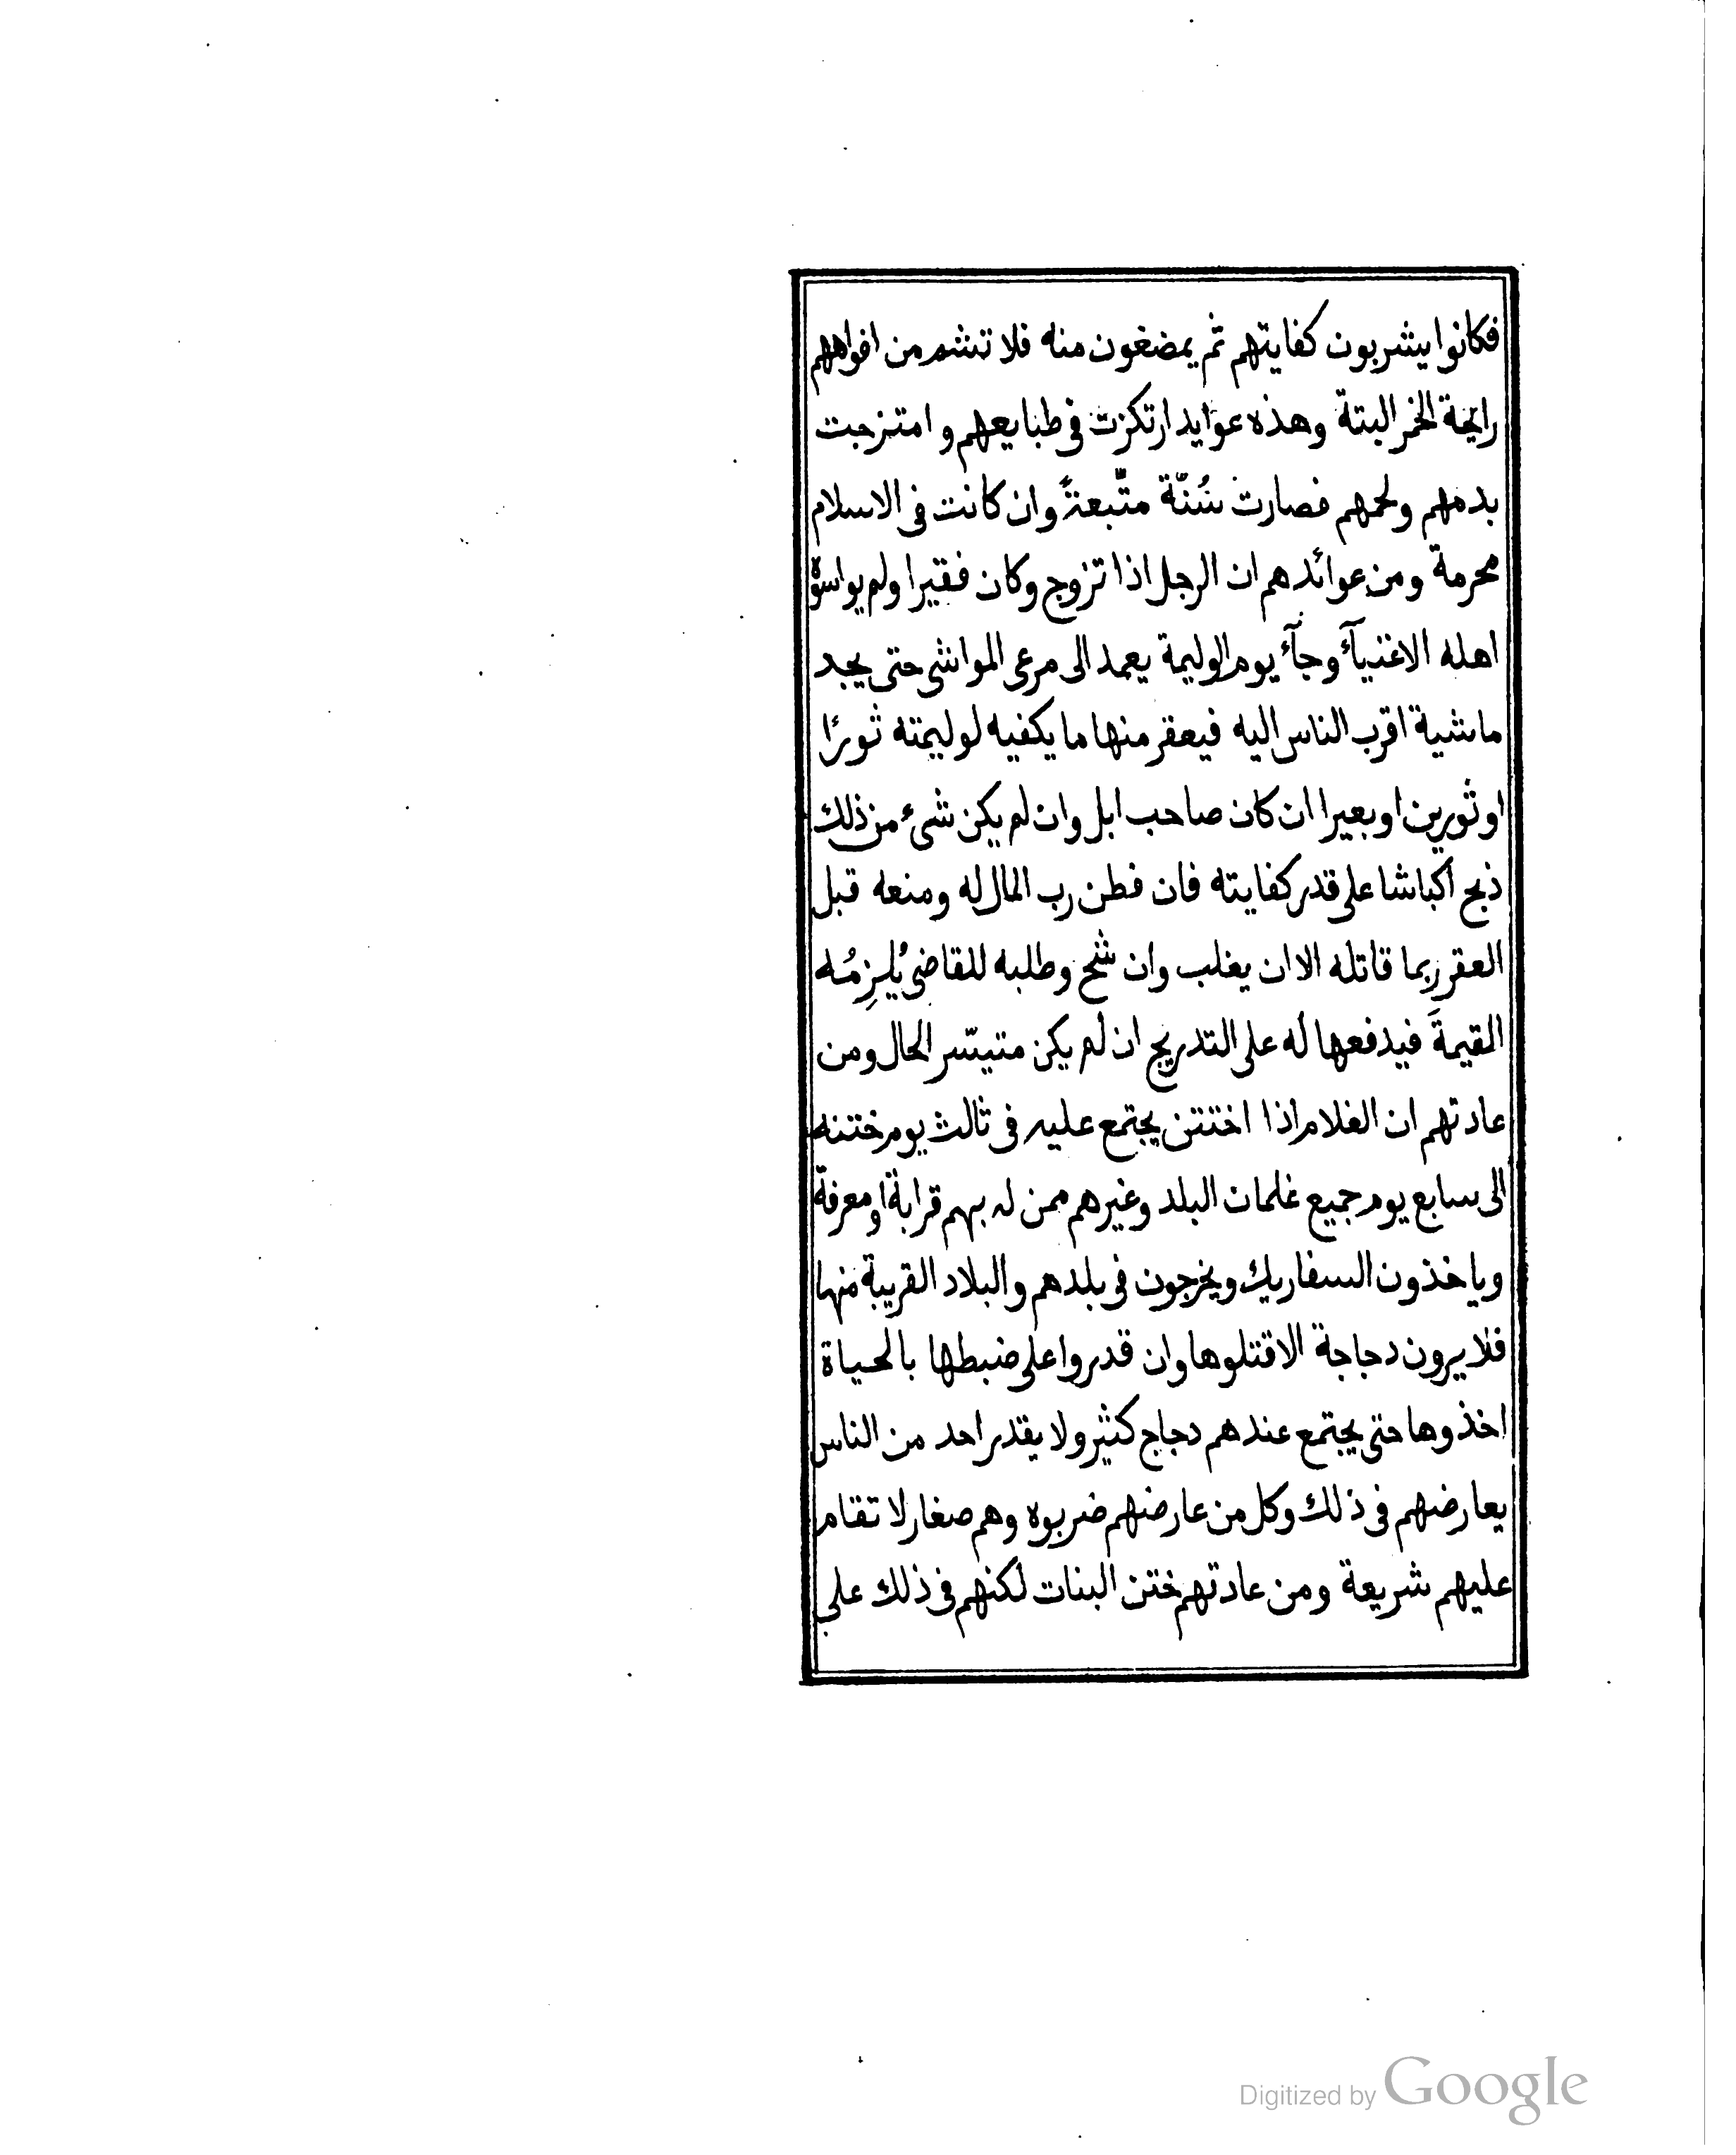 فكانوا يشربون كفايتهم ثم يمضغون منه فلا تشم من افواههم
رايحة الخمر البتة وهذه عوايد ارتكزت فى طبايعهم و امتزجت
بدمهم ولحمهم فصارت سُنّة متّبعةً وان كانت فى الاسلام
محرمة ومن عوائدهم ان الرجل اذا تزوج وكان فقيرا ولم يواسوه
اهله الاغنيآء وجآء يوم الوليمة يعمد الى مرعى المواشى حتى يجد
ماشية اقرب الناس اليه فيعقر منها ما يكفيه لوليمته ثورًا
او ثورين او بعيرا ان كان صاحب ابل وان لم يكن شىء من ذلك
ذبح اكباشا على قدر كفايته فان فطن رب المال له ومنعه قبل
العقر ربما قاتله الا ان يغلب وان شح وطلبه للقاضى يُلزِمُه
القيمةَ فيدفعها له على التدريج ان لم يكن متيسّر الحال ومن
عادتهم ان الغلام اذا اختتن يجتمع عليه فى ثالث يوم ختنه
الى سابع يوم جميع غلمان البلد وغيرهم ممن له بهم قرابة او معرفة
وياخذون السفاريك ويخرجون فى بلدهم والبلاد القريبة منها
فلا يرون دجاجة الا قتلوها وان قدروا على ضبطها بالحياة
اخذوها حتى يجتمع عندهم دجاج كثير ولا يقدر احد من الناس
يعارضهم فى ذلك وكل من عارضهم ضربوه وهم صغار لا تقام
عليهم شريعة ومن عادتهم ختن البنات لكنهم فى ذلك على
Digitized by Google